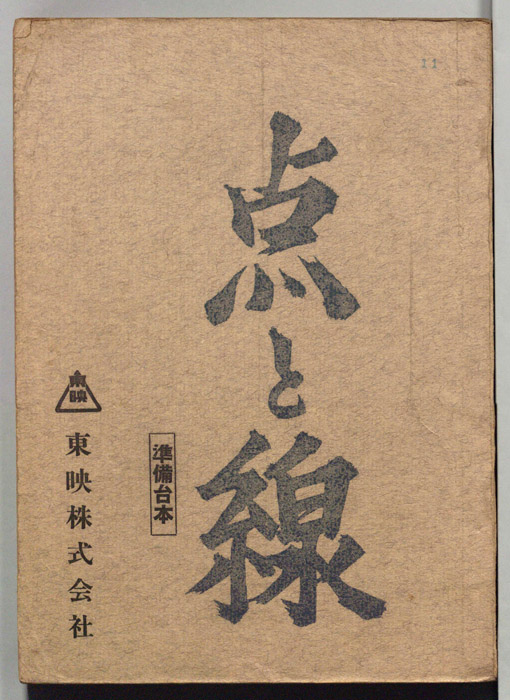 11
点と線
準備台本
東映
東映株式会社